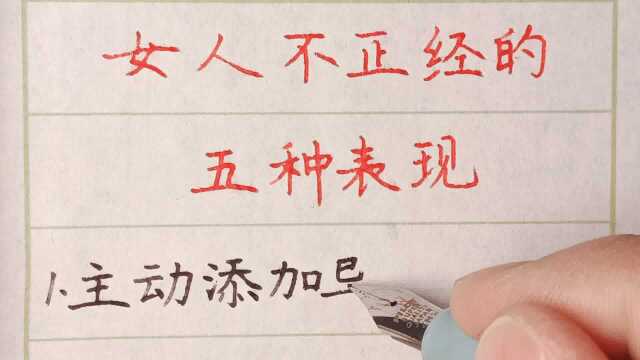 女人不正经的
五种表现
1.主动添加